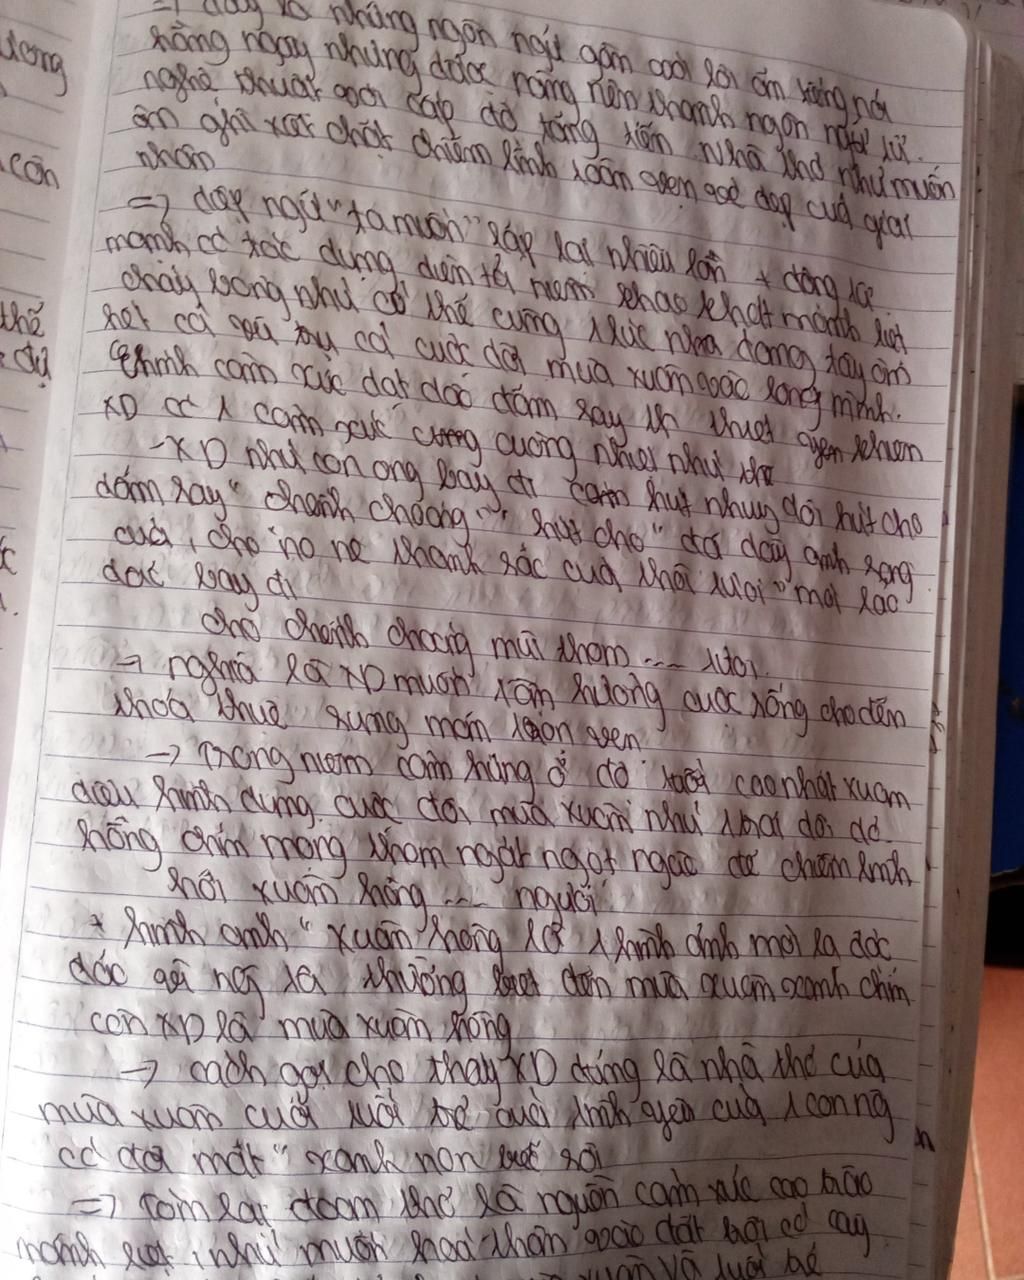 =) đây là những ngôn ngữ gắn với lời ăn tiếng nói
hằng ngày nhưng được nâng lên thành ngôn ngữ
nghệ thuật với cấp độ tăng tiến nhà thơ như muốn
ôm ghì xiết chặt chiếm lĩnh toàn vẹn vẻ đẹp của giai
nhân
=) điệp ngữ "ta muốn" lặp lại nhiều lần + động từ
mạnh có tác dụng diễn tả niềm khao khát mãnh liệt
cháy bỏng như có thể cùng 1 lúc nhà dang tay ôm
hết cả vũ trụ cả cuộc đời mùa xuân vào lòng mình.
Chính cảm xúc dạt dào đắm say
XD có 1 cảm xúc cuồng nhiệt như thế
- XD như con ong bay đi hút nhụy đời hút cho
đắm say "chếnh choáng" hút cho "đã đầy ánh sáng
cuối, cho no nê thanh sắc của thời tươi" mới
bay đi
cho chếnh choáng mùi thơm .... tươi.
-> nghĩa là XD muốn tận hưởng cuộc sống cho đến
thoả thuê sung mãn trọn vẹn
-> Trong niềm cảm hứng ở độ cao nhất xuân
diệu hình dung cuộc đời mùa xuân như trái đời đỏ
hồng chín mọng thơm ngát ngọt ngào để chiếm lĩnh
hỡi xuân hồng .... ngươi
+ hình ảnh "xuân hồng là 1 hình ảnh mới lạ độc
đáo là thường đến mùa xuân xanh chín
còn XD là mùa xuân hồng
-> cách gọi cho thấy XD đúng là nhà thơ của
mùa xuân của tuổi trẻ của tình yêu của 1 con ng
có đôi mắt "xanh non
=) tóm lại đoạn thơ là nguồn cảm xúc cao trào
mãnh liệt, như muốn hoá thân vào đất trời cỏ cây
xuân và tuổi trẻ
ương
còn
thế